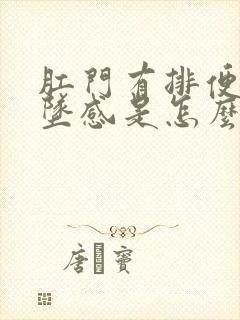 肛門有排便
墜感是怎麼
唐寶